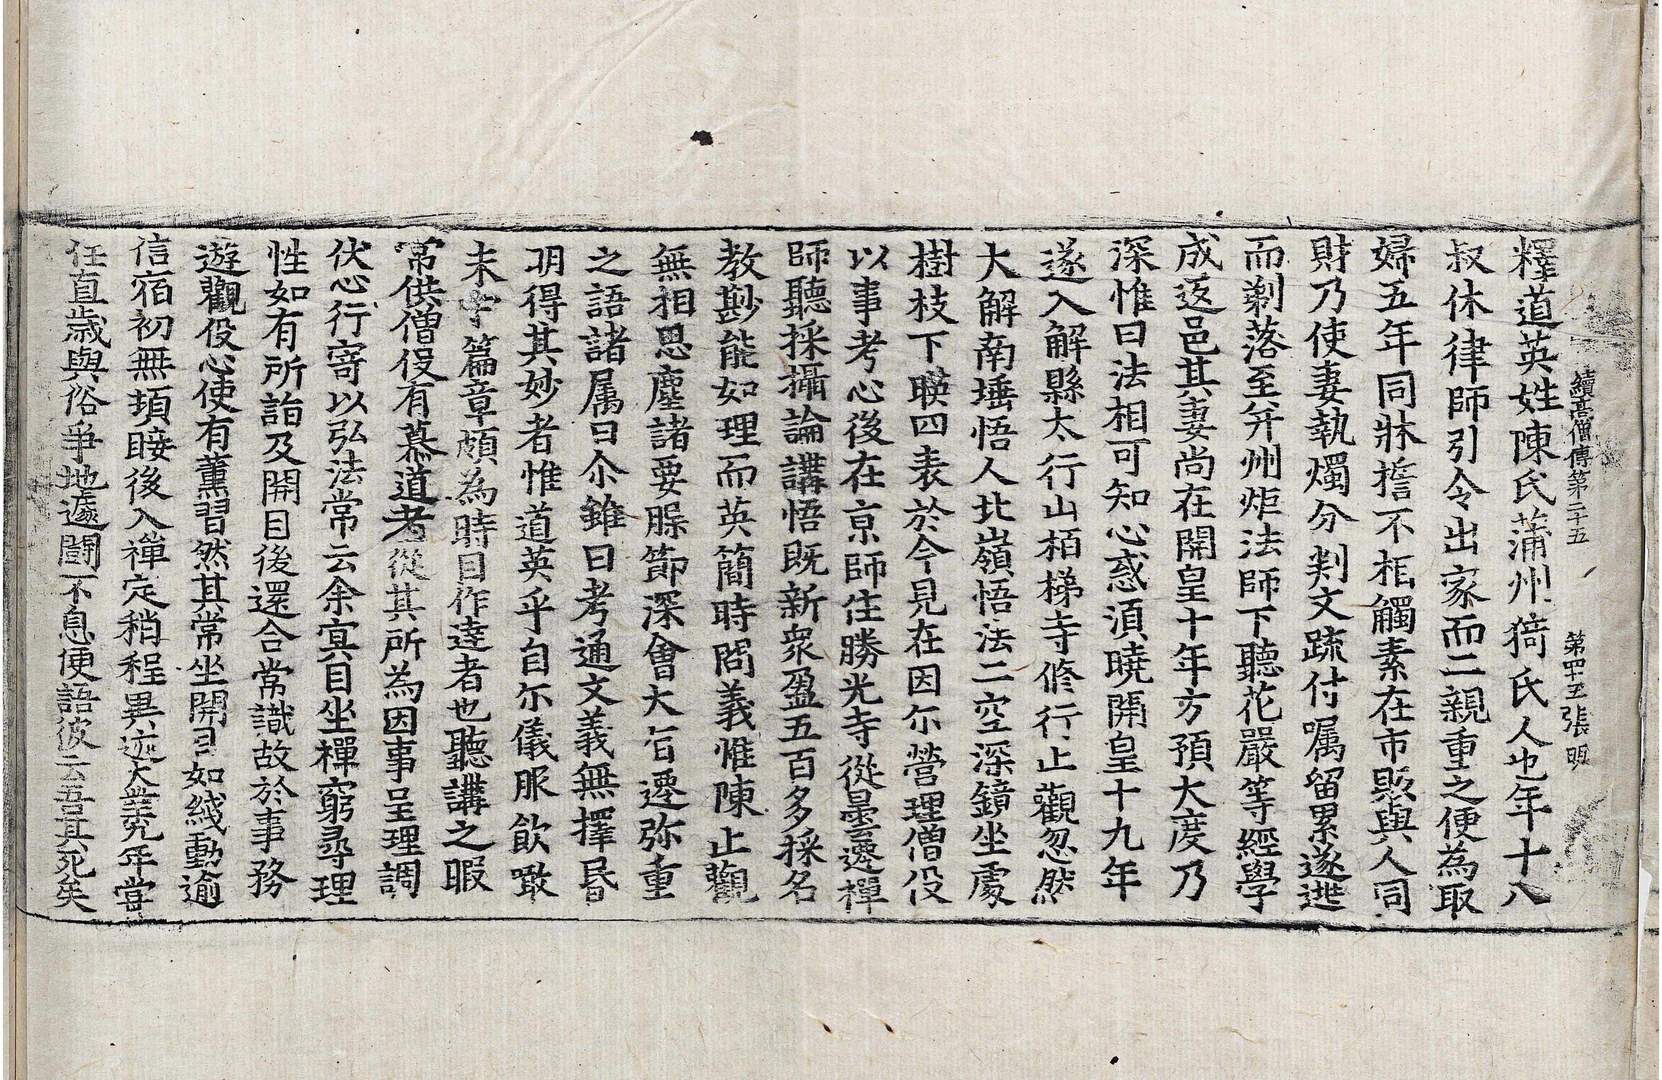 續高僧傳第二十五　第四十五張　明
釋道英姓陳氏蒲州猗氏人也年十八
叔休律師引令出家而二親重之便為取
婦五年同牀誓不相觸素在市敗與人同
財乃使妻執燭分判文疏付囑留累遂逃
而剃落至并州炬法師下聽花嚴等經學
成返邑其妻尚在開皇十年方預大度乃
深惟曰法相可知心惑須曉開皇十九年
遂入解縣太行山栢梯寺修行止觀忽然
大解南埵悟人北嶺悟法二空深鏡坐處
樹枝下映四表於今見在因尒營理僧役
以事考心後在京師住勝光寺從曇遷禪
師聽採攝論講悟既新衆盈五百多採名
教尠能如理而英簡時問義惟陳止觀
無相思塵諸要脲節深會大旨遷弥重
之語諸属曰尒雖日考通文義無擇昬
明得其妙者惟道英乎自尒儀服飲噉
未守篇章頗為時目作達者也聽講之暇
常供僧役有慕道者從其所為因事呈理調
伏心行寄以弘法常云余㝠目坐禪窮尋理
性如有所詣及開目後還合常識故於事務
遊觀役心使有薰習然其常坐開目如綫動逾
信宿初無頃睫後入禪定稍程異迹大業九年嘗
任直歲與俗爭地遽鬪不息便語彼云吾其死矣